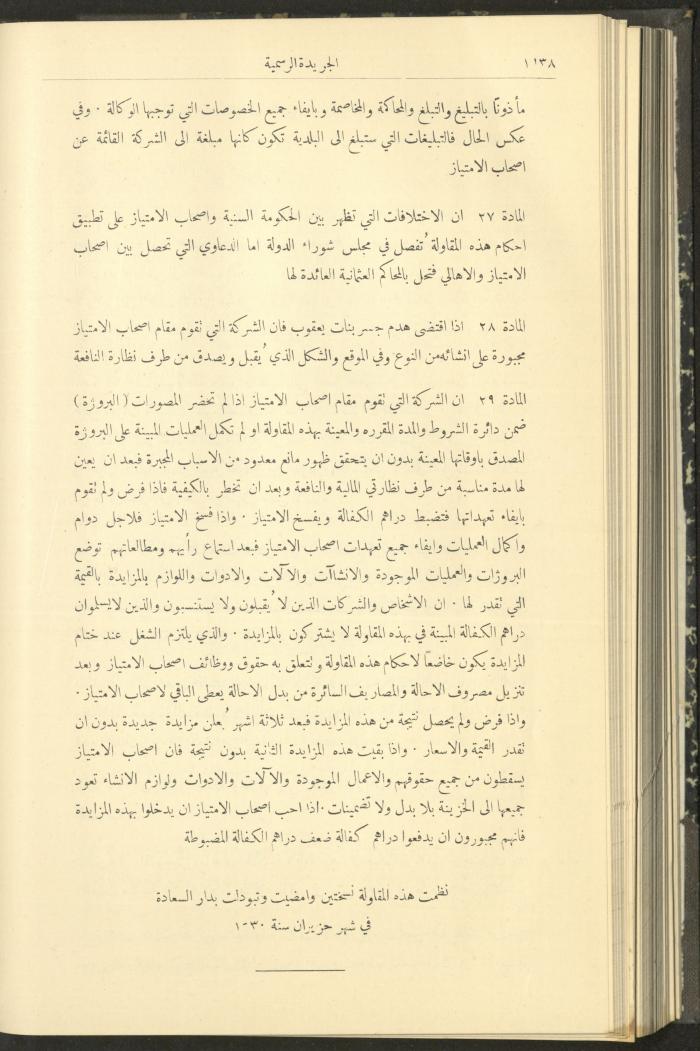 ١١٣٨ الجريدة الرسمية
مأذونًا بالتبليغ والتبلغ والمحاكمة والمخاصمة وبايفاء جميع الخصوصات التي توجبها الوكالة ٠ وفي
عكس الحال فالتبليغات التي ستبلغ الى البلدية تكون كانها مبلغة الى الشركة القائمة عن
اصحاب الامتياز
المادة ٢٧ ان الاختلافات التي تظهر بين الحكومة السنية واصحاب الامتياز على تطبيق
احكام هذه المقاولة تُفصل في مجلس شوراء الدولة اما الدعاوي التي تحصل بين اصحاب
الامتياز والاهالي فتحل بالمحاكم العثمانية العائدة لها
المادة ٢٨ اذا اقتضى هدم جسر بنات يعقوب فان الشركة التي تقوم مقام اصحاب الامتياز
مجبورة على انشائه من النوع وفي الموقع والشكل الذي يُقبل ويصدق من طرف نظارة النافعة
المادة ٢٩ ان الشركة التي تقوم مقام اصحاب الامتياز اذا لم تحضر المصورات ( البروژة )
ضمن دائرة الشروط والمدة المقرره والمعينة بهذه المقاولة او لم تكمل العمليات المبينة على البروژة
المصدق باوقاتها المعينة بدون ان يتحقق ظهور مانع معدود من الاسباب المجبرة فبعد ان يعين
لها مدة مناسبة من طرف نظارتي المالية والنافعة وبعد ان تخطر بالكيفية فاذا فرض ولم تقوم
بايفاء تعهداتها فتضبط دراهم الكفالة ويفسخ الامتياز ٠ واذا فسخ الامتياز فلاجل دوام
واكمال العمليات وايفاء جميع تعهدات اصحاب الامتياز فبعد استماع رأيهم ومطالعاتهم توضع
البروژات والعمليات الموجودة والانشاآت والآلات والادوات واللوازم بالمزايدة بالقيمة
التي تقدر لها ٠ ان الاشخاص والشركات الذين لا يُقبلون ولا يستنسبون والذين لايسلموان
دراهم الكفالة المبينة في بهذه المقاولة لا يشتركون بالمزايدة ٠ والذي يلتزم الشغل عند ختام
المزايدة يكون خاضعاً لاحكام هذه المقاولة وتتعلق به حقوق ووظائف اصحاب الامتياز وبعد
تنزيل مصروف الاحالة والمصاريف السائرة من بدل الاحالة يعطى الباقي لاصحاب الامتياز ٠
واذا فرض ولم يحصل نتيجة من هذه المزايدة فبعد ثلاثة اشهر يُعلن مزايدة جديدة بدون ان
تقدر القيمة والاسعار ٠ واذا بقيت هذه المزايدة الثانية بدون نتيجة فان اصحاب الامتياز
يسقطون من جميع حقوقهم والاعمال الموجودة والآلات والادوات ولوازم الانشاء تعود
جميعها الى الخزينة بلا بدل ولا تضمينات ٠ اذا احب اصحاب الامتياز ان يدخلوا بهذه المزايدة
فانهم مجبورون ان يدفعوا دراهم كفالة ضعف دراهم الكفالة المضبوطة
نظمت هذه المقاولة نسختين وامضيت وتبودات بدار السعادة
في شهر حزيران سنة ٣٠-١